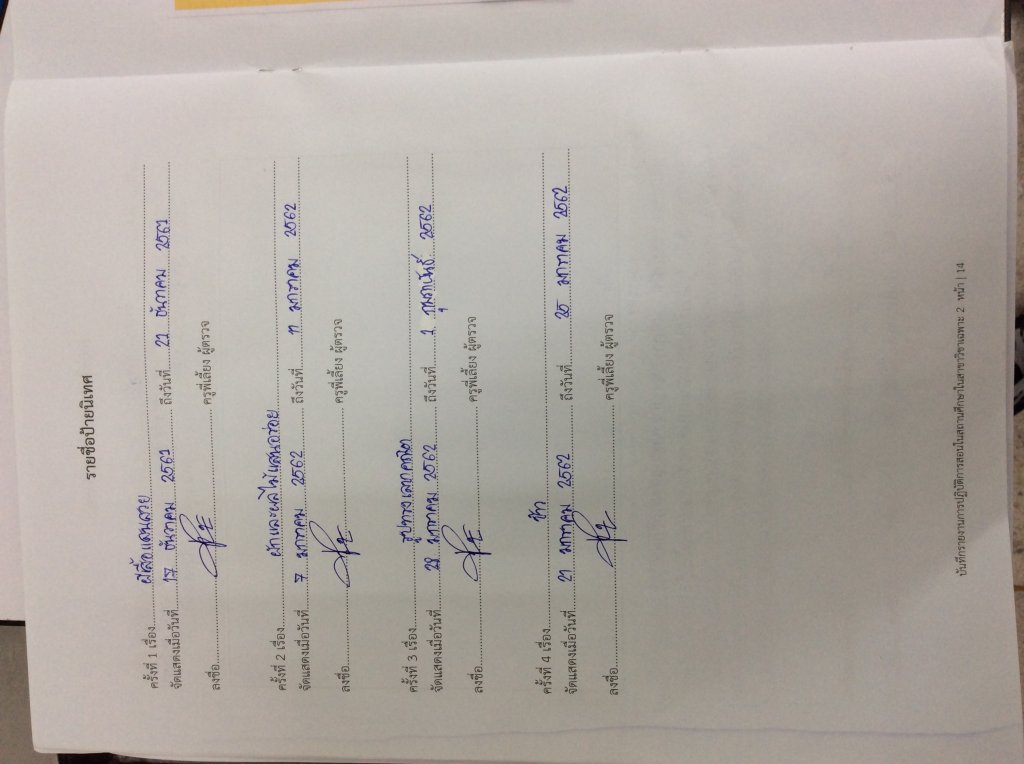 รายชื่อป้ายนิเทศ
ครั้งที่ 1 เรื่อง ผีเสื้อแสนสวย
จัดแสดงเมื่อวันที่ 17 ธันวาคม 2561 ถึงวันที่ 21 ธันวาคม 2561
ลงชื่อ ครูพี่เลี้ยง ผู้ตรวจ
ครั้งที่ 2 เรื่อง ผักและผลไม้แสนอร่อย
จัดแสดงเมื่อวันที่ 7 มกราคม 2562 ถึงวันที่ 11 มกราคม 2562
ลงชื่อ ครูพี่เลี้ยง ผู้ตรวจ
ครั้งที่ 3 เรื่อง รูปทรงเลขาคณิต
จัดแสดงเมื่อวันที่ 28 มกราคม 2562 ถึงวันที่ 1 กุมภาพันธ์ 2562
ลงชื่อ ครูพี่เลี้ยง ผู้ตรวจ
ครั้งที่ 4 เรื่อง
จัดแสดงเมื่อวันที่ 21 มกราคม 2562 ถึงวันที่ 25 มกราคม 2562
ลงชื่อ ครูพี่เลี้ยง ผู้ตรวจ
บันทึกรายงานการปฏิบัติการสอนในสถานศึกษาในสาขาวิชาเฉพาะ 2 หน้า | 14